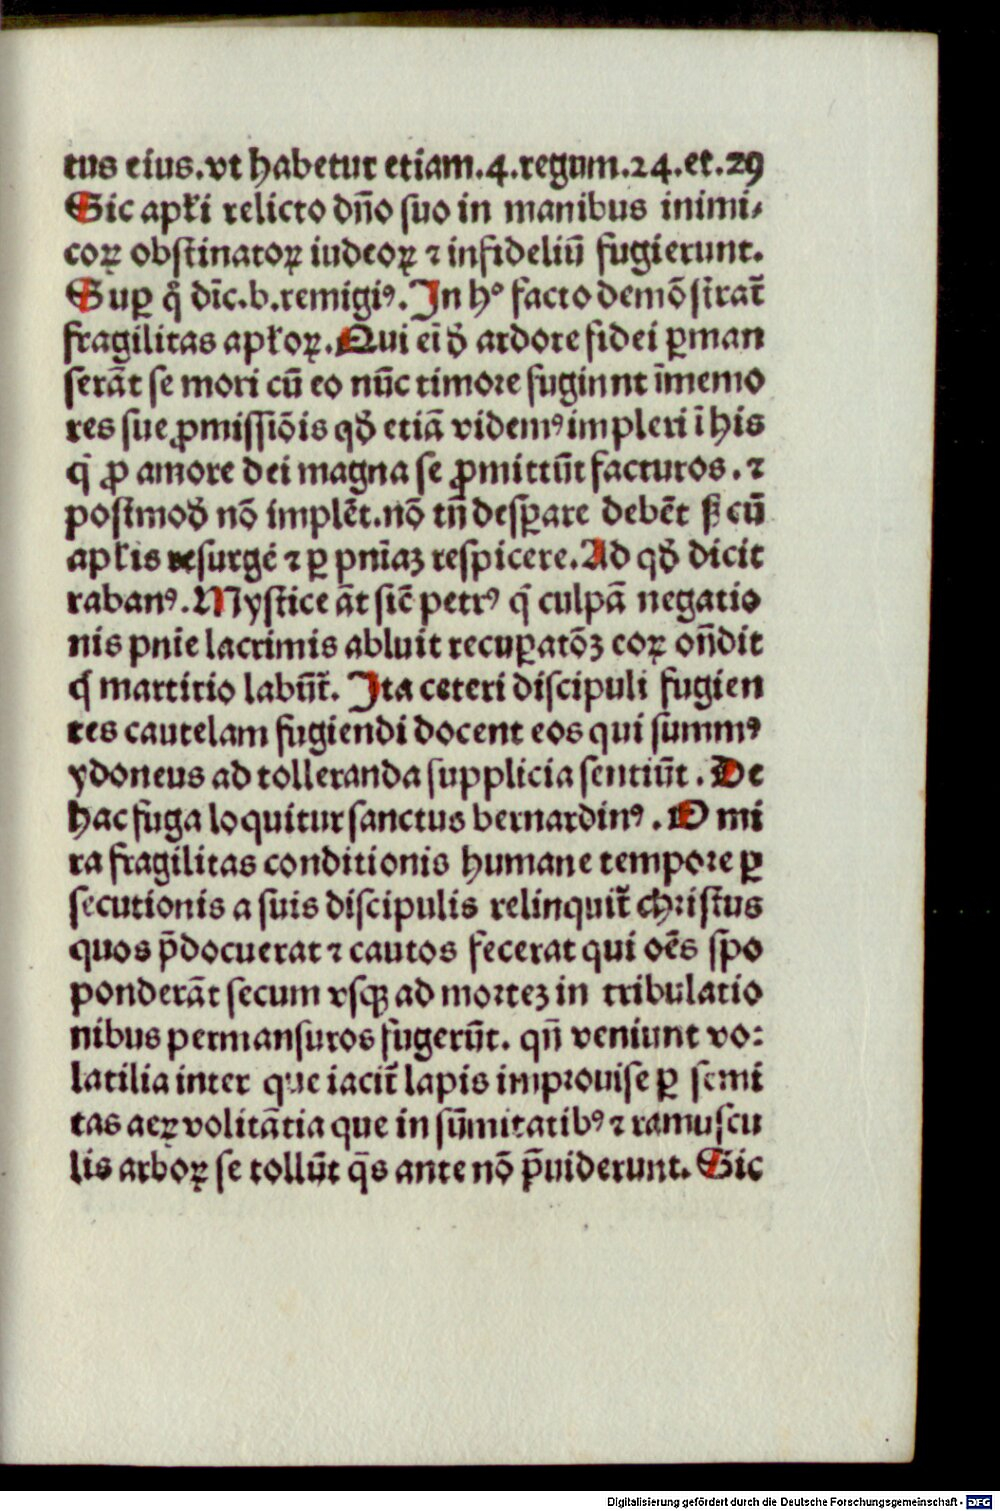 tus eius.vt habetur etiam.4.regum.24.et.29
Sic apłi relicto dn̄o suo in manibus inimi⸗
coꝝ obstinatoꝝ iudeoꝝ ⁊ infideliū fugierunt.
Suꝑ qͦ dic̄.b.remigiꝰ.In hᵒ facto demōstrat᷑
fragilitas apłoꝝ.Qui ei̅ ꝺ̄ ardore fidei ꝑman
serāt se mori cū eo nūc timore fugiunt īmemo
res sue ꝓmissiōis qꝺ̄ etiā videmꝰ impleri ī his
q̄ ꝓ amore dei magna se ꝓmittūt facturos.⁊
postmoꝺ̄ nō implēt.nō tn̄ desꝑare debēt sꝫ cū
apłis resurgē ⁊ ꝑ pn̄iaꝫ respicere.Ad qꝺ̄ dicit
rabanꝰ.Mystice āt sic̄ petrꝰ q̄ culpā negatio
nis pn̄ie lacrimis abluit recuꝑatōꝫ eoꝝ on̄dit
q̄ martirio labūt᷑. Ita ceteri discipuli fugien
tes cautelam fugiendi docent eos qui summꝰ
ydoneus ad tolleranda supplicia sentiūt .De
hac fuga loquitur sanctus bernardinꝰ .O mi
ra fragilitas conditionis humane tempore ꝑ
secutionis a suis discipulis relinquit᷑ christus
quos p̄docuerat ⁊ cautos fecerat qui oēs spo
ponderāt secum vsqꝫ ad morteꝫ in tribulatio
nibus permansuros fugerūt. qn̄ veniunt vo:
latilia inter que iacit᷑ lapis improuise ꝑ semi
tas aeꝝ volitātia que in sūmitatibꝰ ⁊ ramuscu
lis arboꝝ se tollūt q̄s ante nō p̄uiderunt. Sic
Digitalisierung gefördert durch die Deutsche Forschungsgemeinschaft - DFG